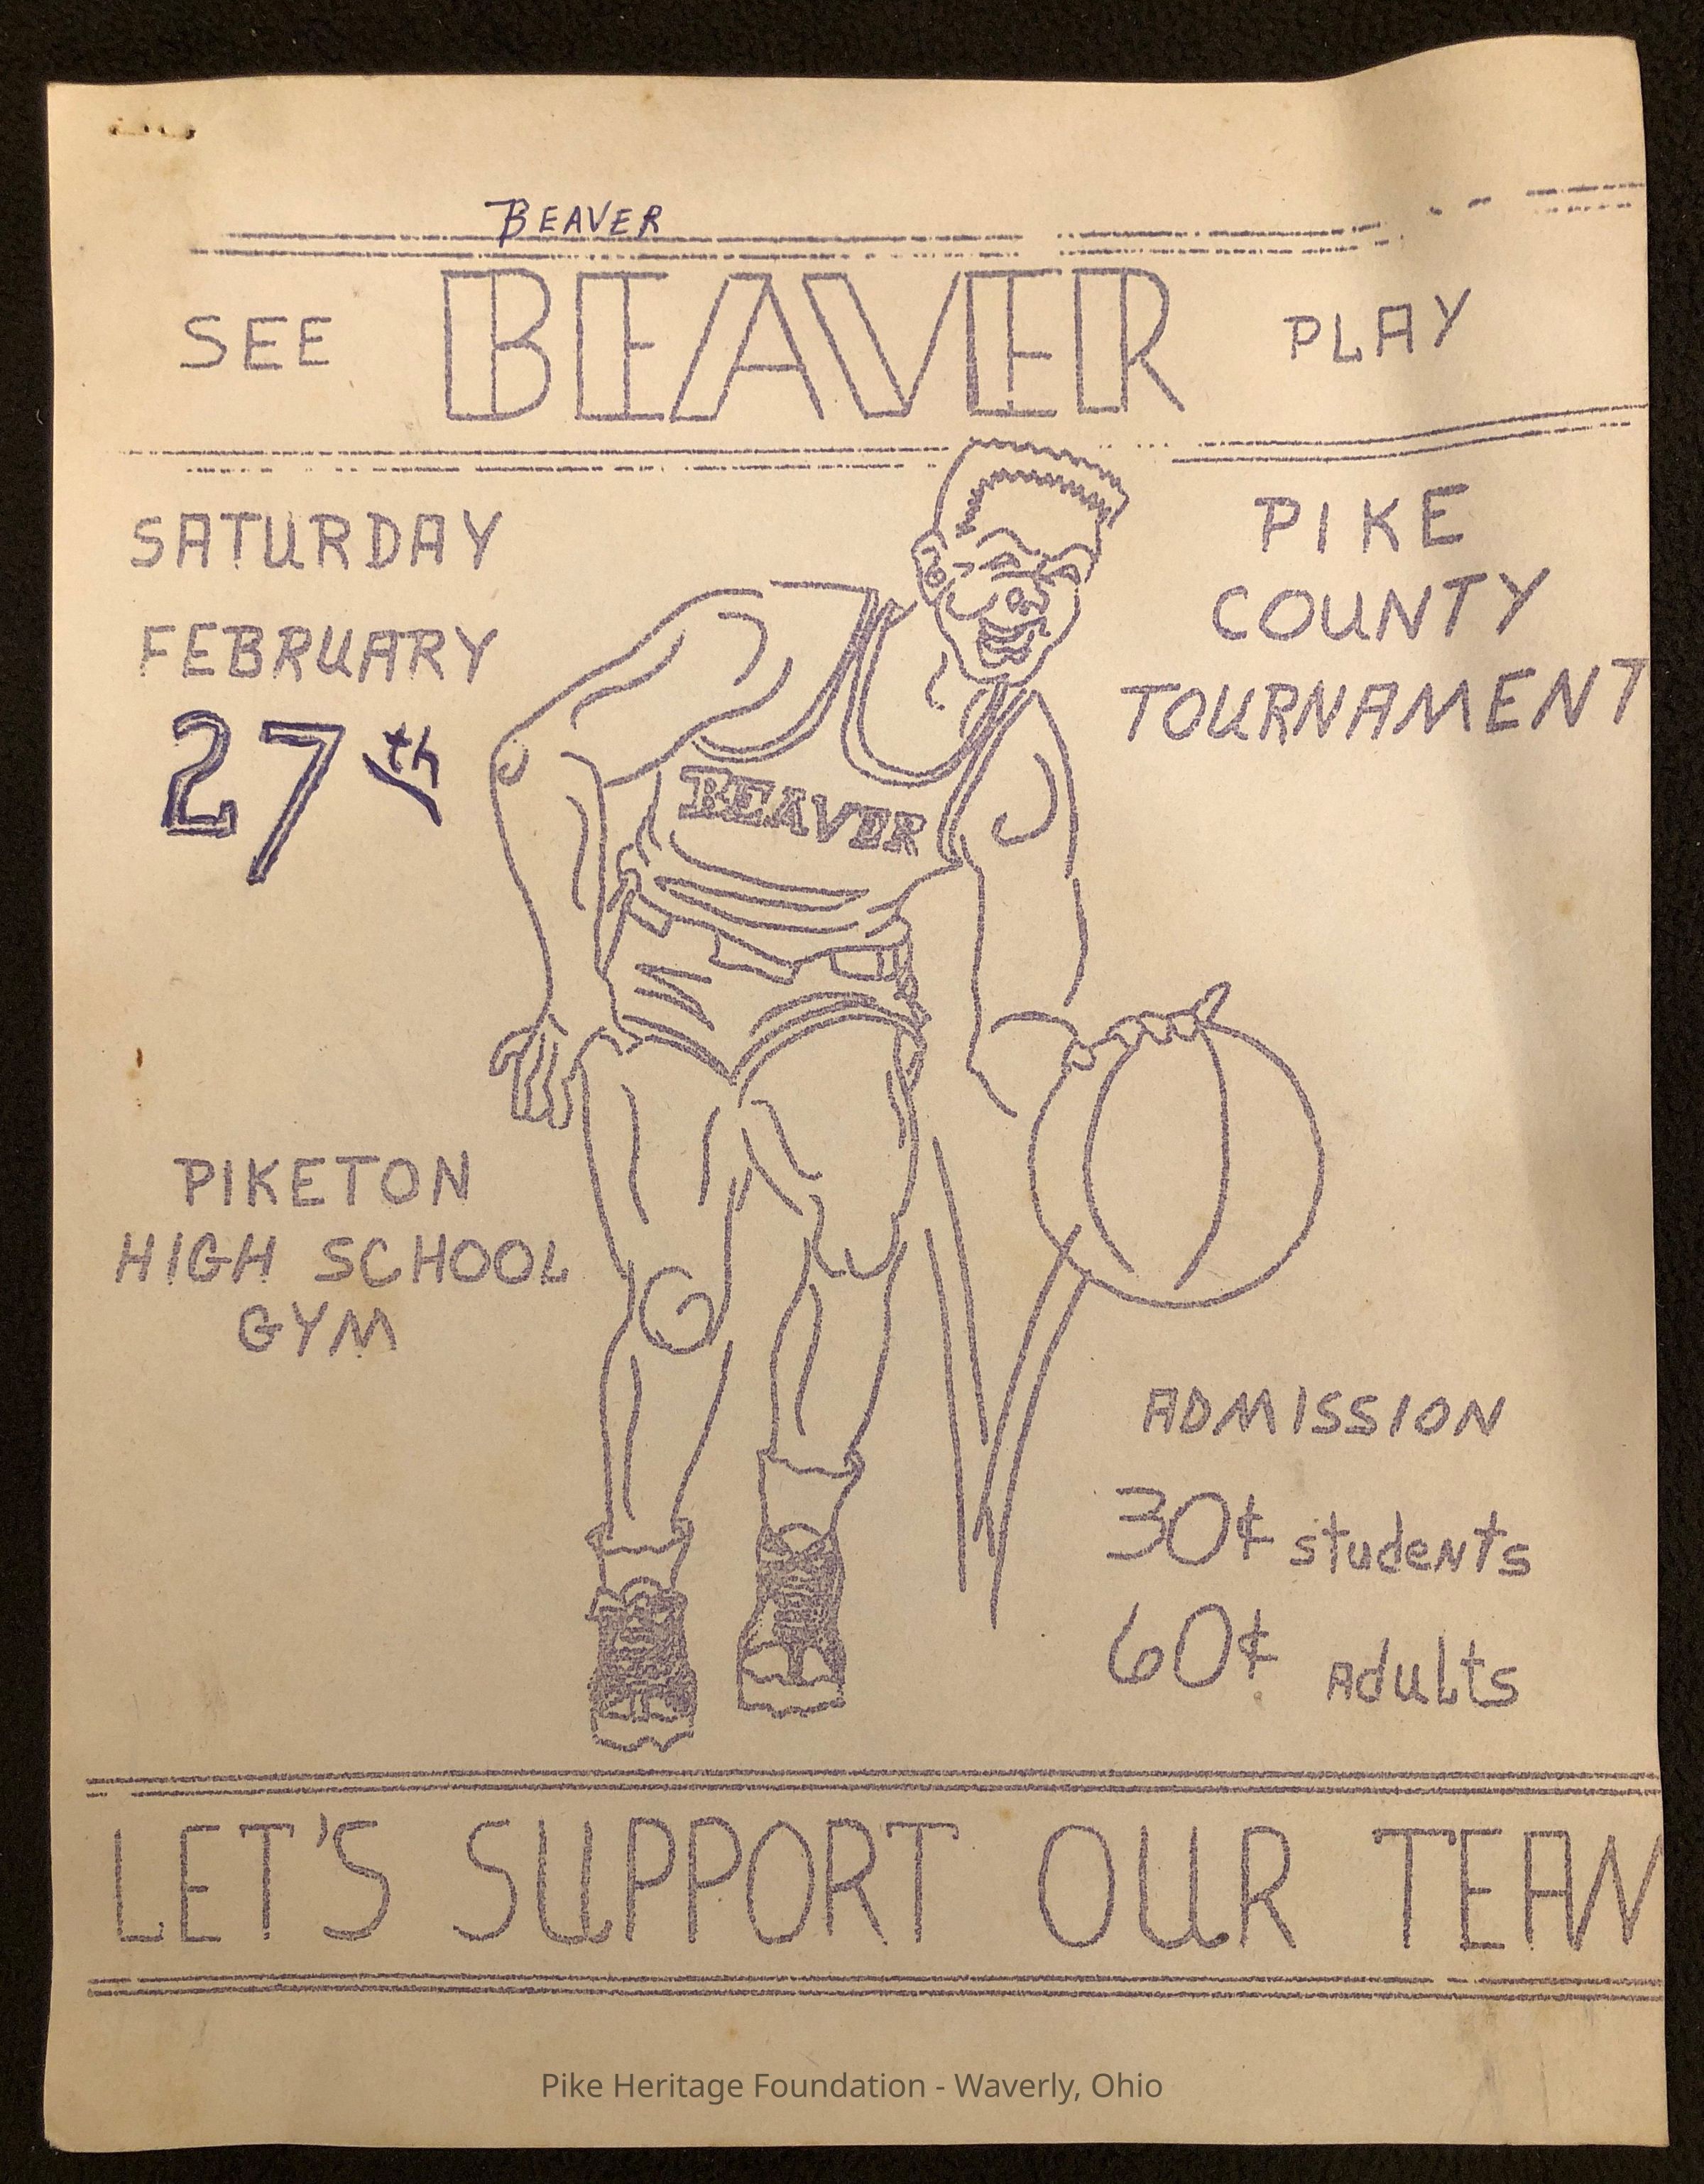 BEAVER
SEE BEAVER PLAY
SATURDAY
FEBRUARY
27th
PIKE
COUNTY
TOURNAMENT
BEAVER
PIKETON
HIGH SCHOOL
GYM
ADMISSION
30¢ students
60¢ Adults
LET'S SUPPORT OUR TEAM
Pike Heritage Foundation - Waverly, Ohio